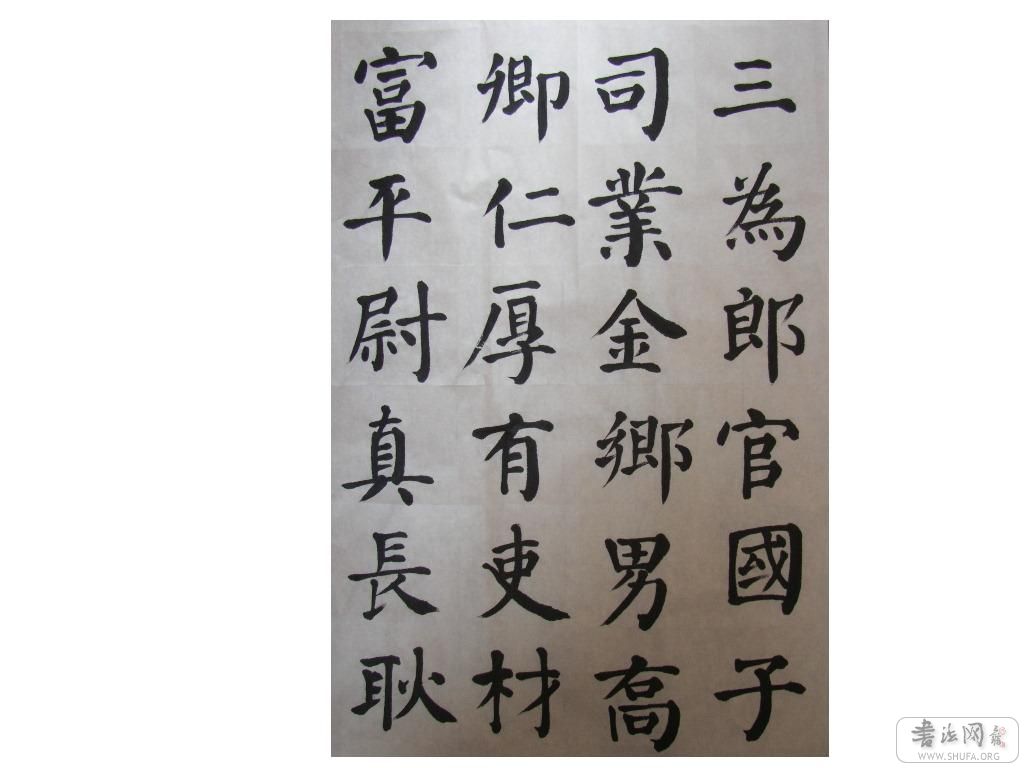 三為郎官國子
司業金鄉男髙
卿仁厚有吏材
富平尉真長耿
书法网
WWW.SHUFA.ORG